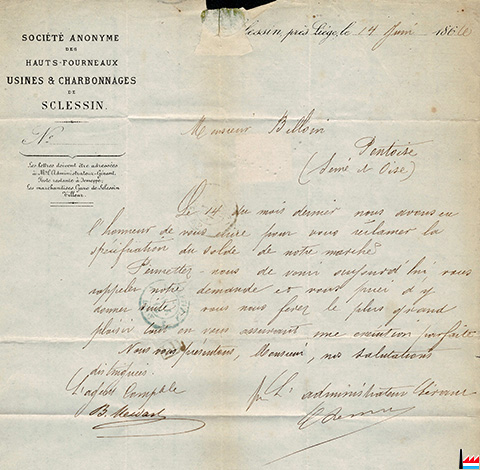 Sclessin, près Liège, le 14 Juin 186
SOCIÉTÉ ANONYME
DES
HAUTS-FOURNEAUX
USINES & CHARBONNAGES
DE
SCLESSIN.
N°
Les lettres doivent être adressées
à Mr l'Administrateur-Gérant.
Poste restante à Jemeppe,
les marchandises Gare de Sclessin
Tilleur.
Monsieur Billoin
Pontoise
(Seine & Oise)
Le 14 du mois dernier nous avons eu
l'honneur de vous écrire pour vous réclamer la
spécification du solde de notre marché
Permettez-nous de venir aujourd'hui vous
rappeler notre demande et vous prier d'y
donner suite vous nous ferez le plus grand
plaisir en vous assurant une exécution parfaite
Nous vous présentons, Monsieur, nos salutations
distinguées.
L'agent Comptable
pr L'administrateur Gérant